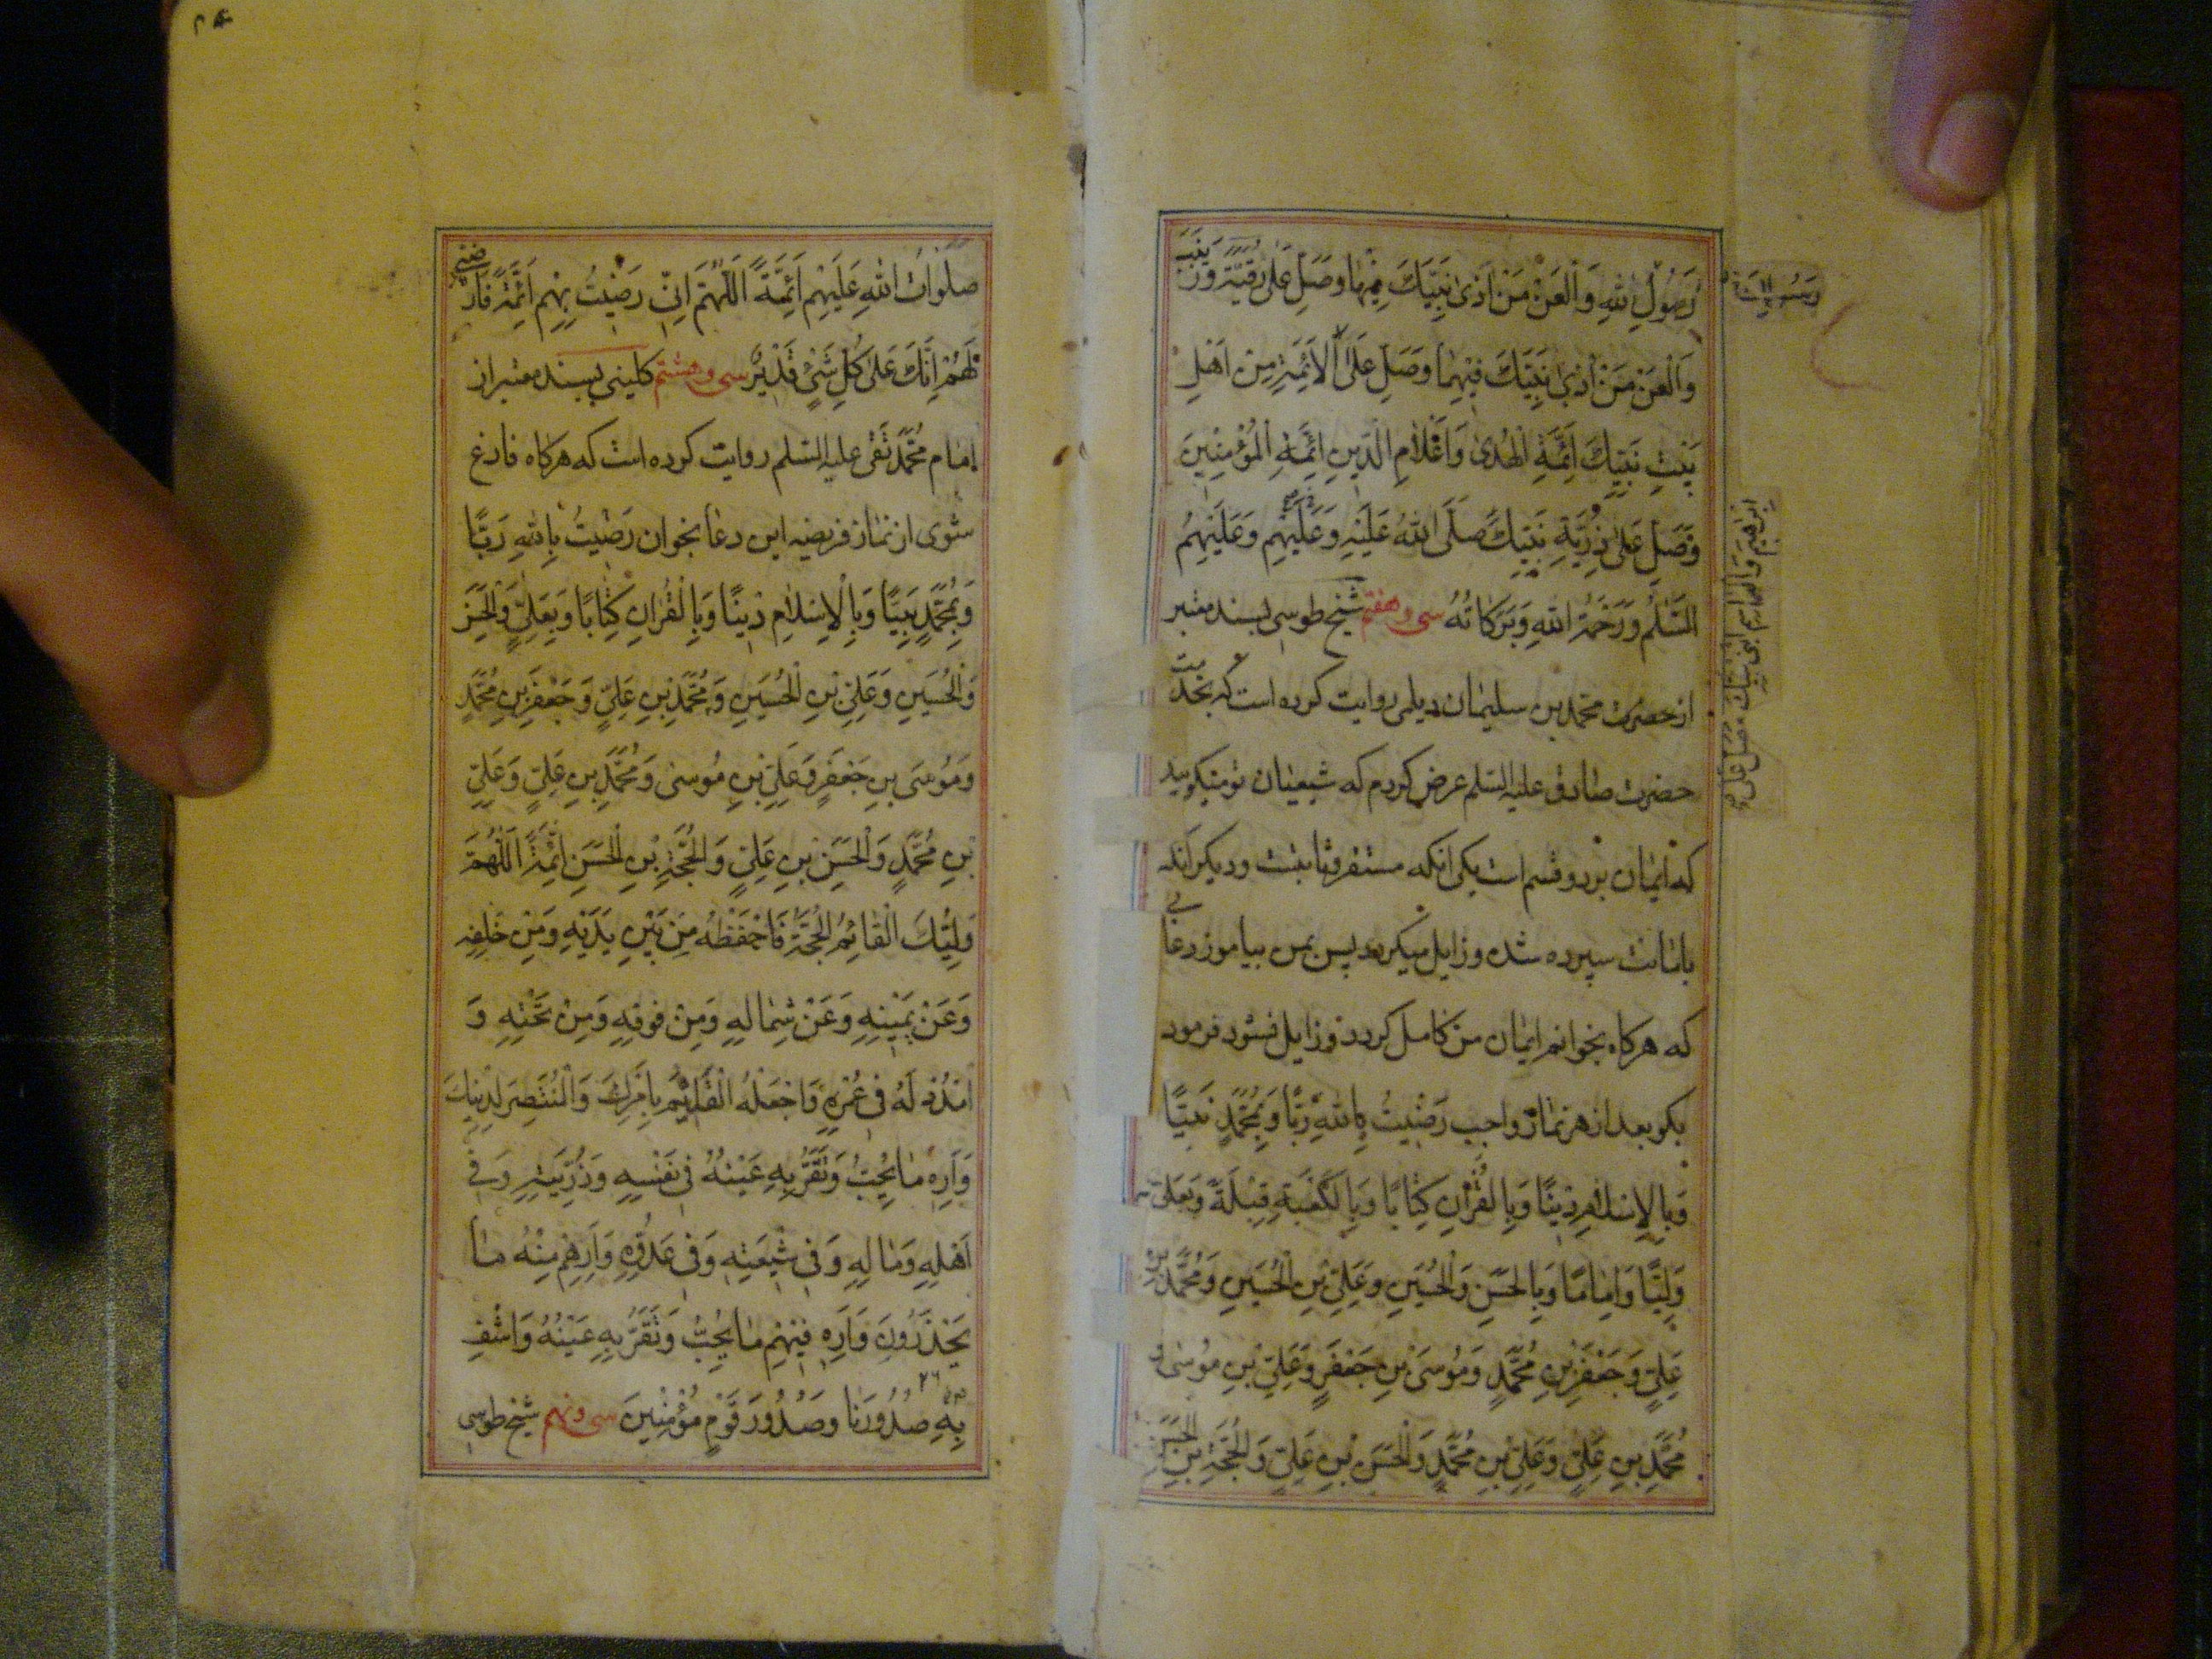 رَسُولِ اللهِ وَالْعَنْ مَنْ اٰذىٰ نَبِيَّكَ فِيْهٰا وَصَلِّ عَلىٰ رُقَيَّةَ وَزَيْنَبَ
وَالْعَنْ مَنْ اٰذىٰ نَبِيَّكَ فِيْهِمٰا وَصَلِّ عَلَى الْاَئِمَّةِ مِنْ اَهْلِ
بَيْتِ نَبِيِّكَ اَئِمَّةِ الْهُدىٰ وَاَعْلٰامِ الدّينِ اَئِمَّةِ الْمُؤْمِنينَ
وَصَلِّ عَلىٰ ذُرِّيَّةِ نَبِيِّكَ صَلَّى اللهُ عَلَيْهِ وَعَلَيْهِمْ وَعَلَيْهِمُ
السَّلٰمُ وَرَحْمَةُ اللهِ وَبَرَكاتُهُ سى و هفتم شيخ طوسى بسند معتبر
از حضرت محمد بن سليمان ديلمى روايت كرده است كه بخدمت
حضرت صادق عليه السلم عرض كردم كه شيعيان تو ميكويند
كه ايمان بر دو قسم است يكى انكه مستقر و ثابت و ديكر انكه
بامانت سپرده شده و زايل ميكردد پس بمن بياموز دعائى
كه هركاه بخوانم ايمان من كامل كردد و زايل نشود فرمود
بكو بعد از هر نماز واجب رَضيتُ بِاللهِ رَبًّا وَبِمُحَمَّدٍ نَبِيًّا
وَبِالْاِسْلٰامِ دينًا وَبِالْقُرْاٰنِ كِتٰابًا وَبِالْكَعْبَةِ قِبْلَةً وَبِعَلِيٍّ
وَلِيًّا وَاِمٰامًا وَبِالْحَسَنِ وَالْحُسَيْنِ وَعَلِيِّ بْنِ الْحُسَيْنِ وَمُحَمَّدِ بْنِ
عَلِيٍّ وَجَعْفَرِ بْنِ مُحَمَّدٍ وَمُوسَى بْنِ جَعْفَرٍ وَعَلِيِّ بْنِ مُوسىٰ وَ
مُحَمَّدِ بْنِ عَلِيٍّ وَعَلِيِّ بْنِ مُحَمَّدٍ وَالْحَسَنِ بْنِ عَلِيٍّ وَالْحُجَّةِ بْنِ الْحَسَنِ
صَلَوٰاتُ اللهِ عَلَيْهِمْ اَئِمَّةً اَللّٰهُمَّ اِنّى رَضيتُ بِهِمْ اَئِمَّةً فَارْضَنى
لَهُمْ اِنَّكَ عَلىٰ كُلِّ شَيْءٍ قَديرٌ سى و هشتم كلينى بسند معتبر از
امام مُحَمَّد تقى عليه السلم روايت كرده است كه هركاه فارغ
شوى از نماز فريضه اين دعا بخوان رَضيتُ بِاللهِ رَبًّا
وَبِمُحَمَّدٍ نَبِيًّا وَبِالْاِسْلٰامِ دينًا وَبِالْقُرْاٰنِ كِتٰابًا وَبِعَلِيٍّ وَالْحَسَنِ
وَالْحُسَيْنِ وَعَلِيِّ بْنِ الْحُسَيْنِ وَمُحَمَّدِ بْنِ عَلِيٍّ وَجَعْفَرِ بْنِ مُحَمَّدٍ
وَمُوسَى بْنِ جَعْفَرٍ وَعَلِيِّ بْنِ مُوسىٰ وَمُحَمَّدِ بْنِ عَلِيٍّ وَعَلِيِّ
بْنِ مُحَمَّدٍ وَالْحَسَنِ بْنِ عَلِيٍّ وَالْحُجَّةِ بْنِ الْحَسَنِ اَئِمَّةً اَللّٰهُمَّ
وَلِيُّكَ الْقٰائِمُ الْحُجَّةُ فَاحْفَظْهُ مِنْ بَيْنِ يَدَيْهِ وَمِنْ خَلْفِهِ
وَعَنْ يَمينِهِ وَعَنْ شِمٰالِهِ وَمِنْ فَوْقِهِ وَمِنْ تَحْتِهِ وَ
امْدُدْ لَهُ فى عُمْرِهِ وَاجْعَلْهُ الْقٰائِمَ بِاَمْرِكَ وَالْمُنْتَصِرَ لِدينِكَ
وَاَرِهِ مٰا يُحِبُّ وَتَقَرُّ بِهِ عَيْنُهُ فى نَفْسِهِ وَذُرِّيَّتِهِ وَفى
اَهْلِهِ وَمٰالِهِ وَفى شيعَتِهِ وَفى عَدُوِّهِ وَاَرِهِمْ مِنْهُ مٰا
يَحْذَرُونَ وَاَرِهِ فيهِمْ مٰا يُحِبُّ وَتَقَرُّ بِهِ عَيْنُهُ وَاشْفِ
بِهِ صُدُورَنٰا وَصُدُورَ قَوْمٍ مُؤْمِنينَ سى و نهم شيخ طوسى